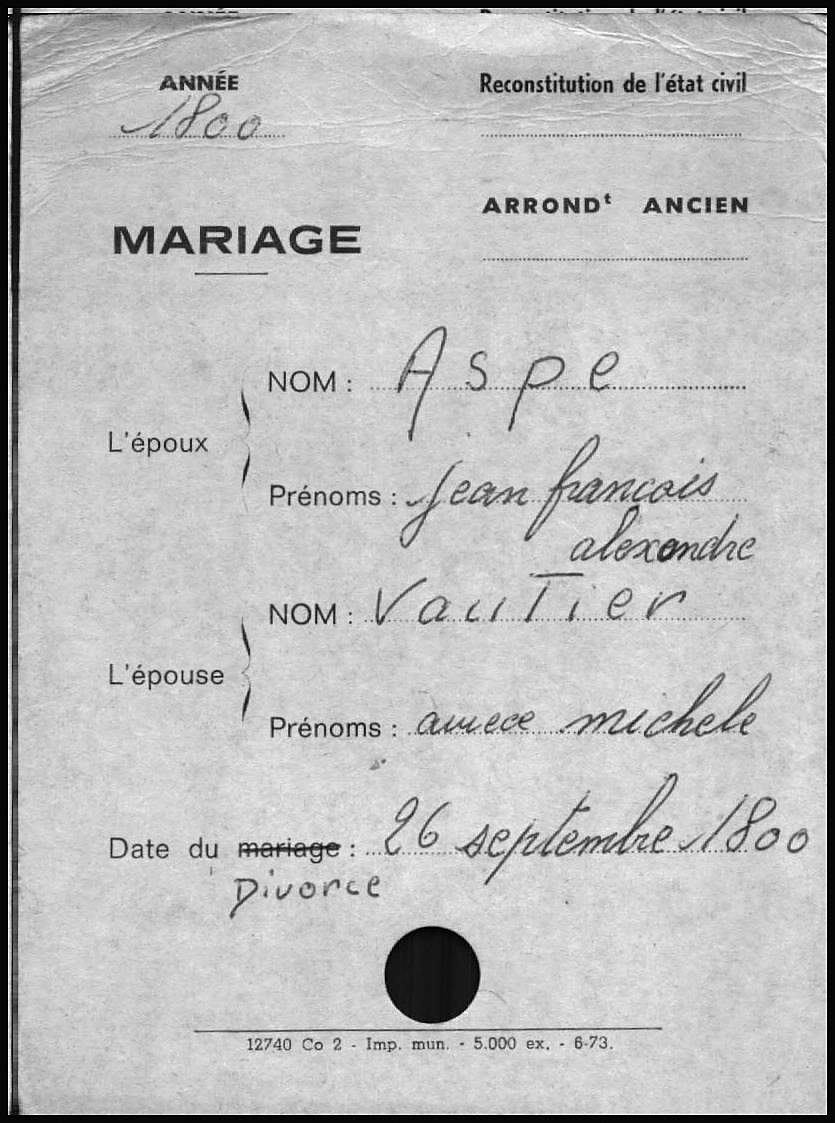 ANNÉE
1800
Reconstitution de l'état civil
ARRONDᵗ ANCIEN
MARIAGE
L'époux
NOM : Aspe
Prénoms : jean francois
alexandre
L'épouse
NOM : Vautier
Prénoms : michele
Date du mariage : 26 septembre 1800
Divorce
12740 Co 2 - Imp. mun. - 5.000 ex. - 6-73.